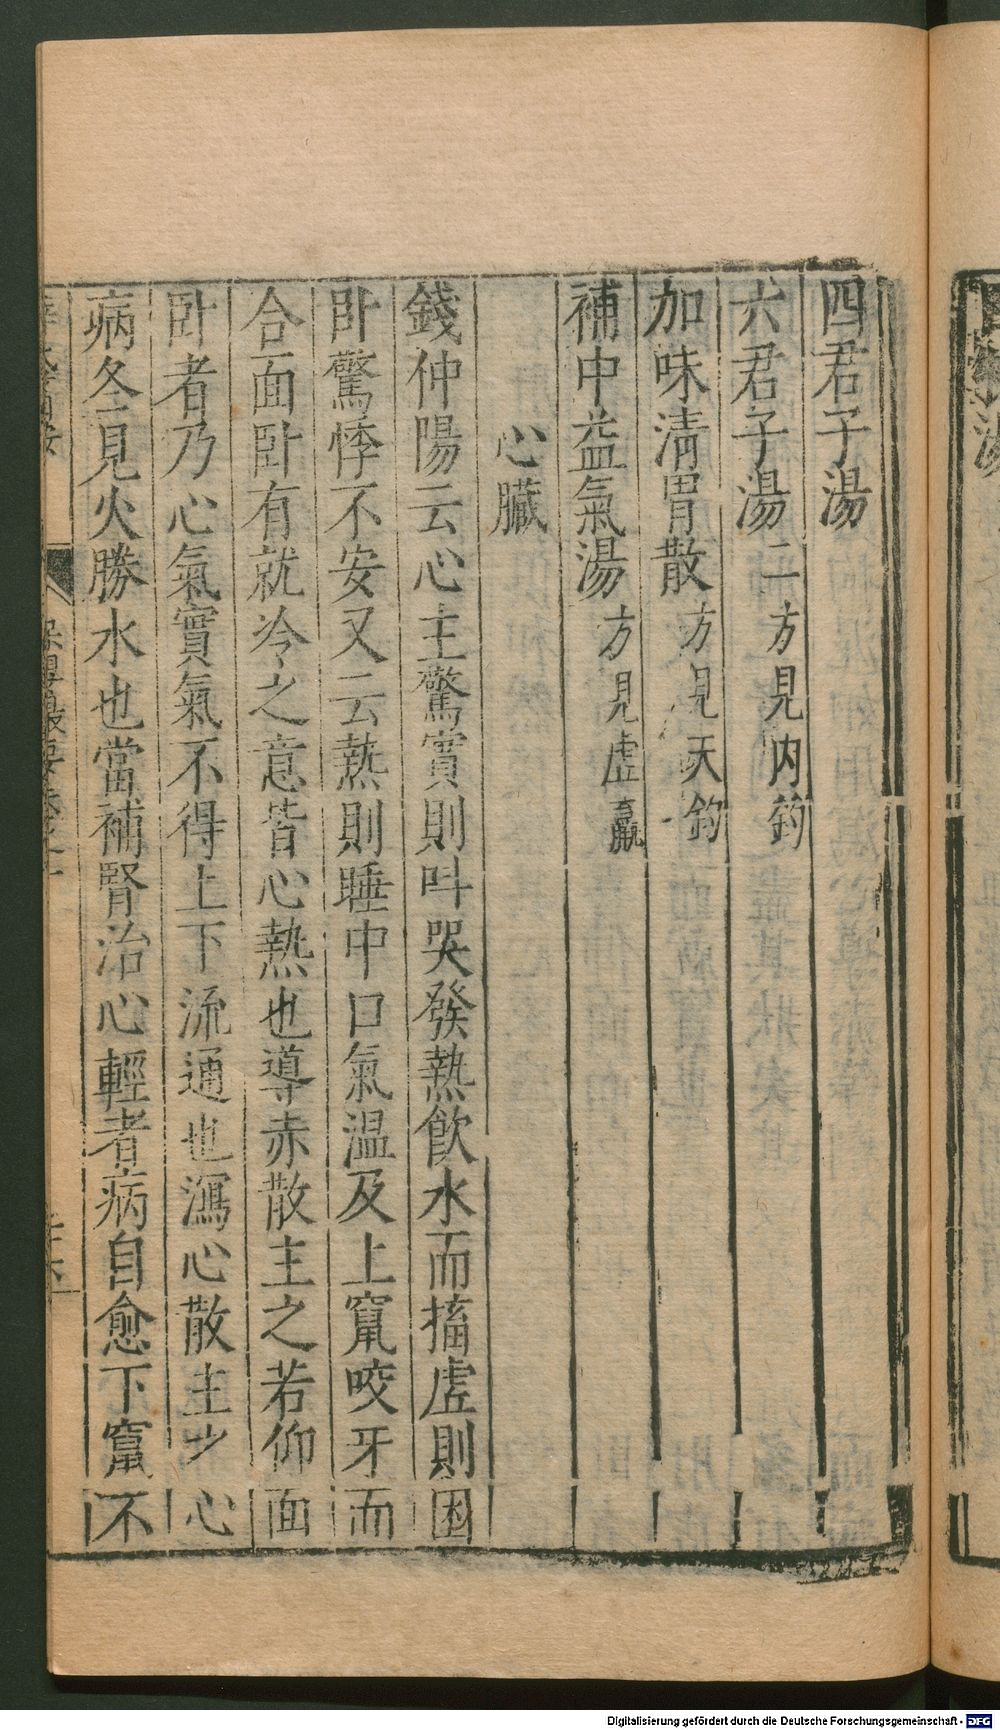 四君子湯
六君子湯二方見内鈞
加味清胃散方見天鈞
補中益氣湯方見虛羸
心臟
錢仲陽云心主驚實則呌哭發熱飲水而搐虛則困
卧驚悸不安又云熱則睡中口氣溫及上竄咬牙而
合面卧有就冷之意皆心熱也導赤散主之若仰面
卧者乃心氣實氣不得上下流通也瀉心散主之心
病冬見火勝水也當補腎治心輕者病自愈下竄不
保嬰撮要卷之一
Digitalisierung gefördert durch die Deutsche Forschungsgemeinschaft - DFG